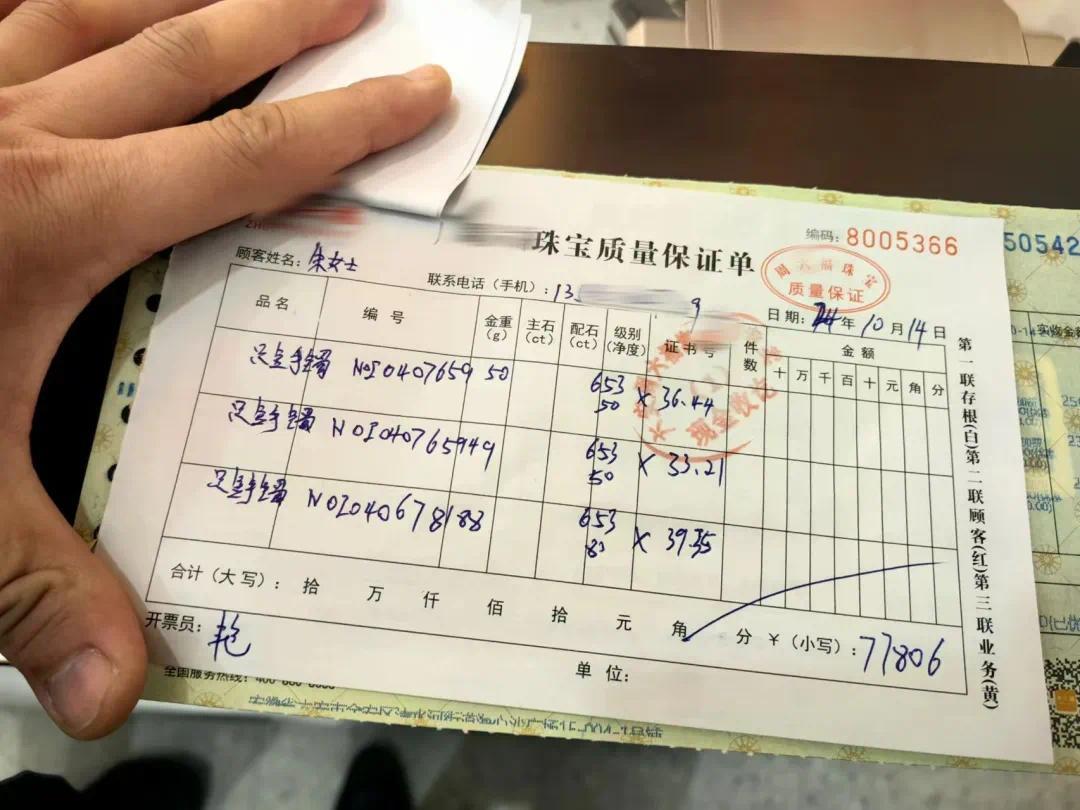 珠宝质量保证单
编码:8005366
50542
顾客姓名:朱女士
联系电话(手机):13 9
周六福珠宝
质量保证
日期:24年10月14日
品名 编号 金重(g) 主石(ct) 配石(ct) 级别(净度) 证书号 件数 金额
十 万 千 百 十 元 角 分
现金收讫
足金手镯 NOI0407659 50 653 50 X 36.44
足金手镯 NOI040765949 653 50 X 33.21
足金手镯 NOI040678188 653 80 X 39.35
合计(大写): 拾 万 仟 佰 拾 元 角 分 ¥(小写):77806
开票员:艳
单位:
全国服务热线:400-880-8080
第一联存根(白)第二联顾客(红)第三联业务(黄)
实收金额